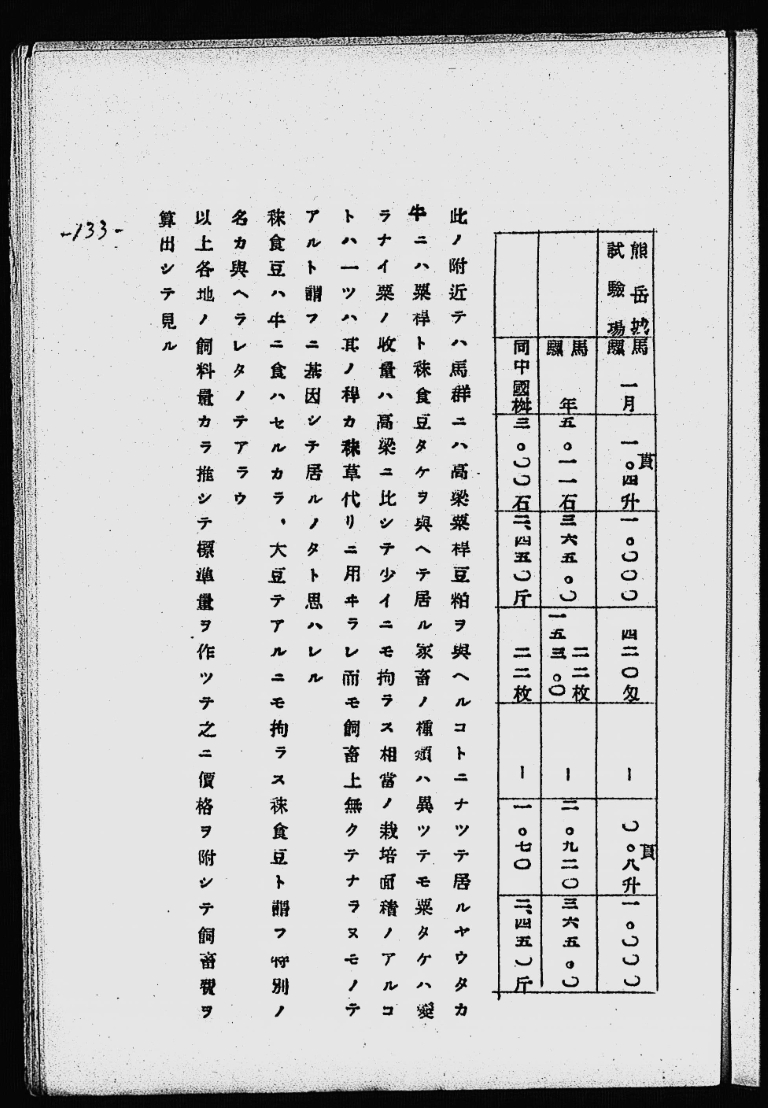 熊岳城
試驗場
馬
騾
一月
貫
一。四升
一。〇〇〇
四二〇匁
ー
貫
〇。八升
一。〇〇〇
馬
騾
年
五。一一石
三六五。〇
二二枚
一五三。〇
ー
二。九二〇
三六五。〇
同中國桝
三。〇〇石
二、四五〇斤
二二枚
ー
一。七〇
二、四五〇斤
此ノ附近テハ馬群ニハ高梁粟稈豆粕ヲ與ヘルコトニナツテ居ルヤウタカ
牛ニハ粟稈ト秣食豆タケヲ與ヘテ居ル家畜ノ種類ハ異ツテモ粟タケハ變
ラナイ粟ノ收量ハ高梁ニ比シテ少イニモ拘ラス相當ノ栽培面積ノアルコ
トハ一ツハ其ノ稈カ秣草代リニ用ヰラレ而モ飼畜上無クテナラヌモノテ
アルト謂フニ基因シテ居ルノタト思ハレル
秣食豆ハ牛ニ食ハセルカラ、大豆テアルニモ拘ラス秣食豆ト謂フ特別ノ
名カ與ヘラレタノテアラウ
以上各地ノ飼料量カラ推シテ標準量ヲ作ツテ之ニ價格ヲ附シテ飼畜費ヲ
算出シテ見ル
-133-